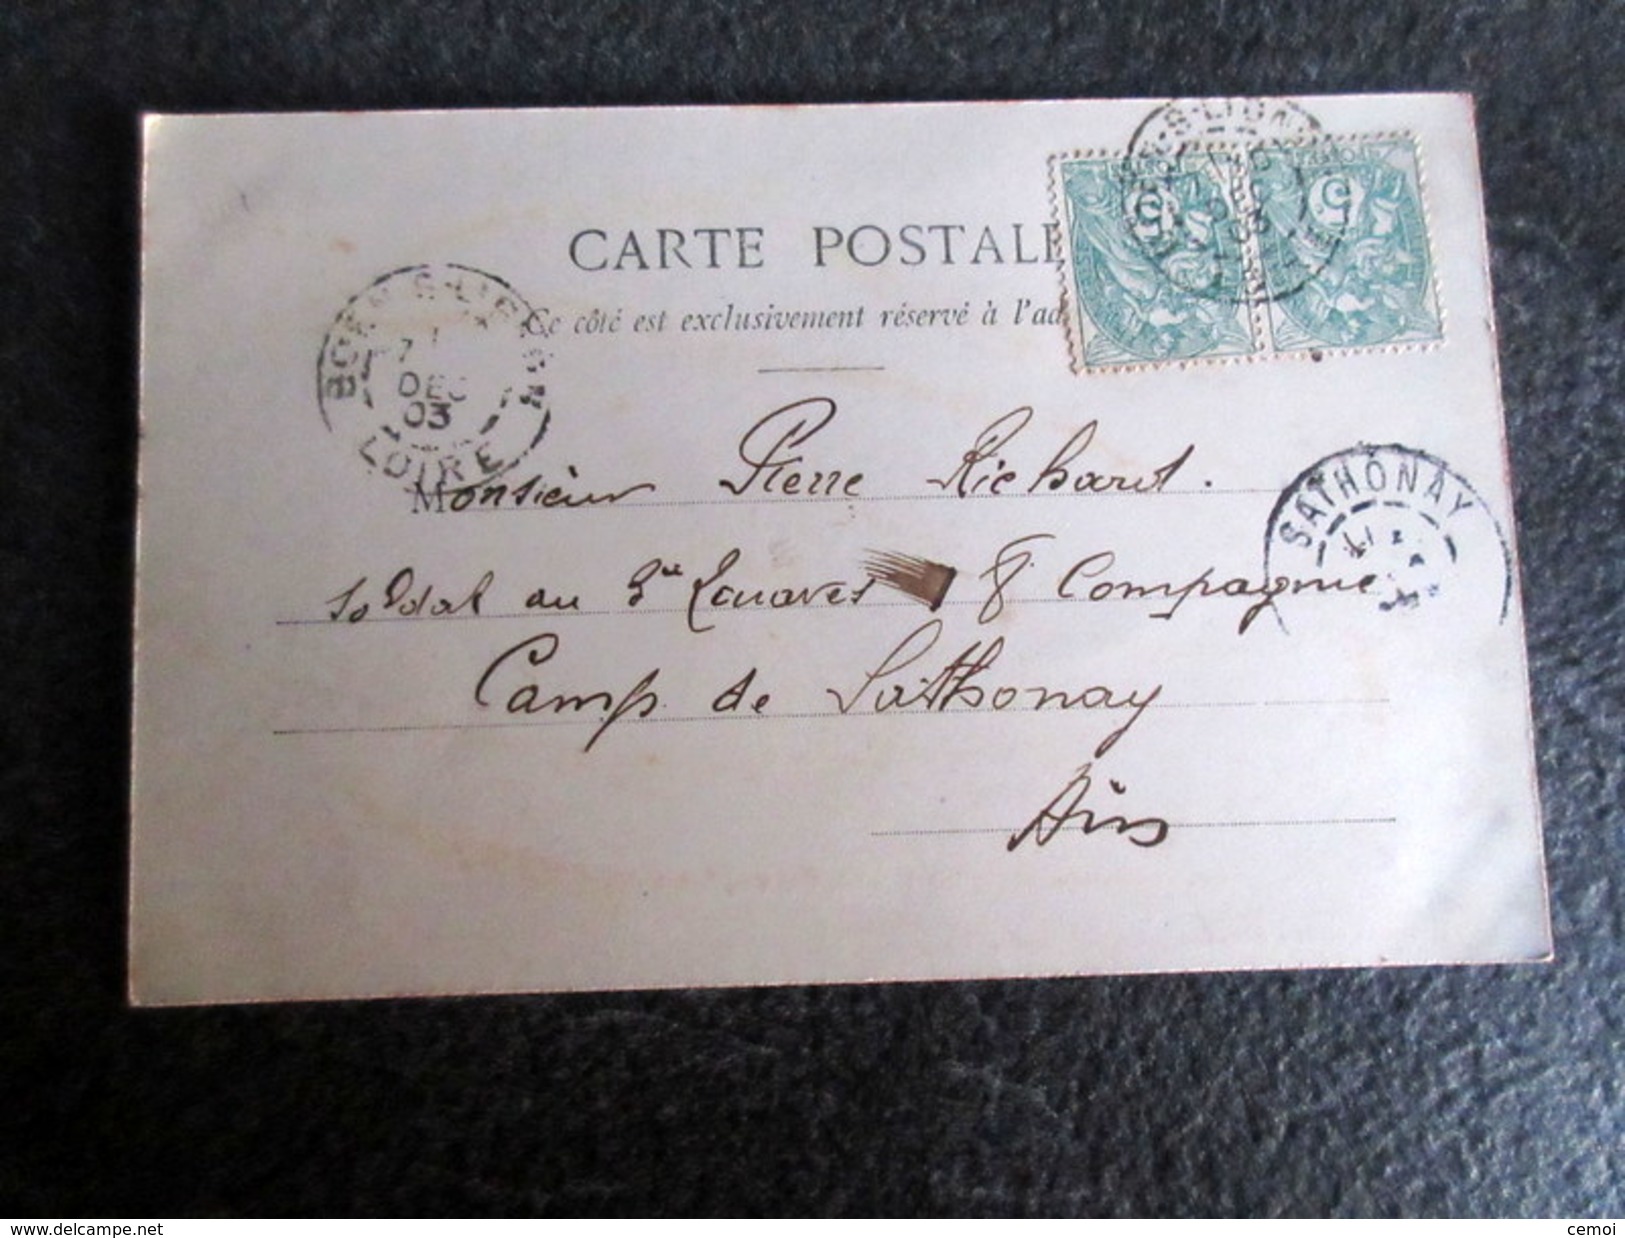 CARTE POSTALE
Ce côté est exclusivement réservé à l'ad
BOEN-S-LIGNON
7
DEC
03
LOIRE
5
5
Monsieur Pierre Richard.
SATHONAY
soldat au 3me Zouaves 8 Compagnie
Camp de Sathonay
Ain
www.delcampe.net
cemoi